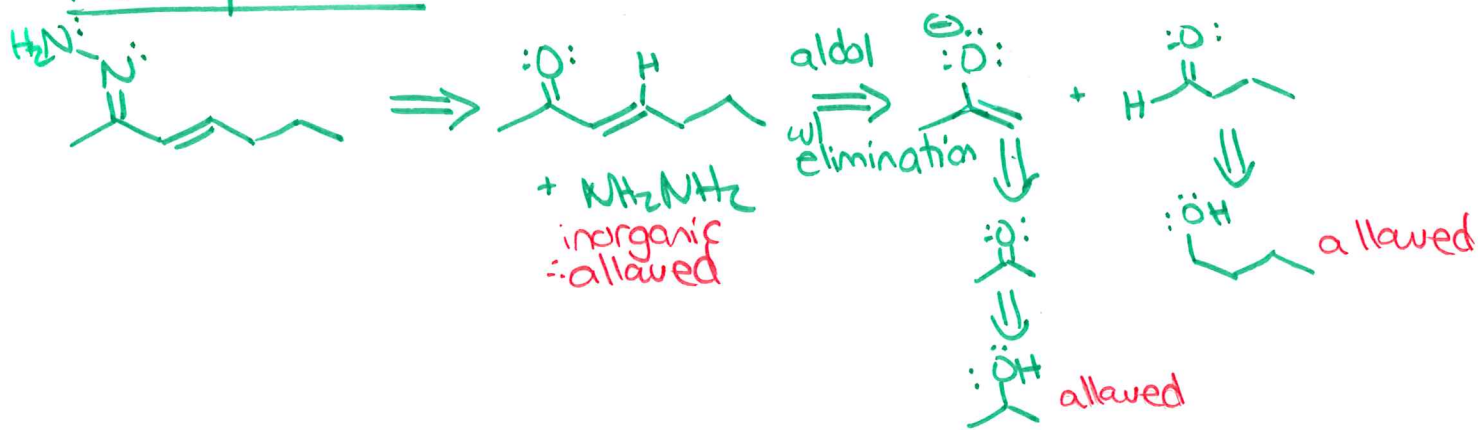 H₂N:
N:
:O:
H
aldol
w/
elimination
⊖
:O:
+
:O:
H
+ NH₂NH₂
inorganic
∴ allowed
:O:
:ÖH
allowed
:ÖH
allowed